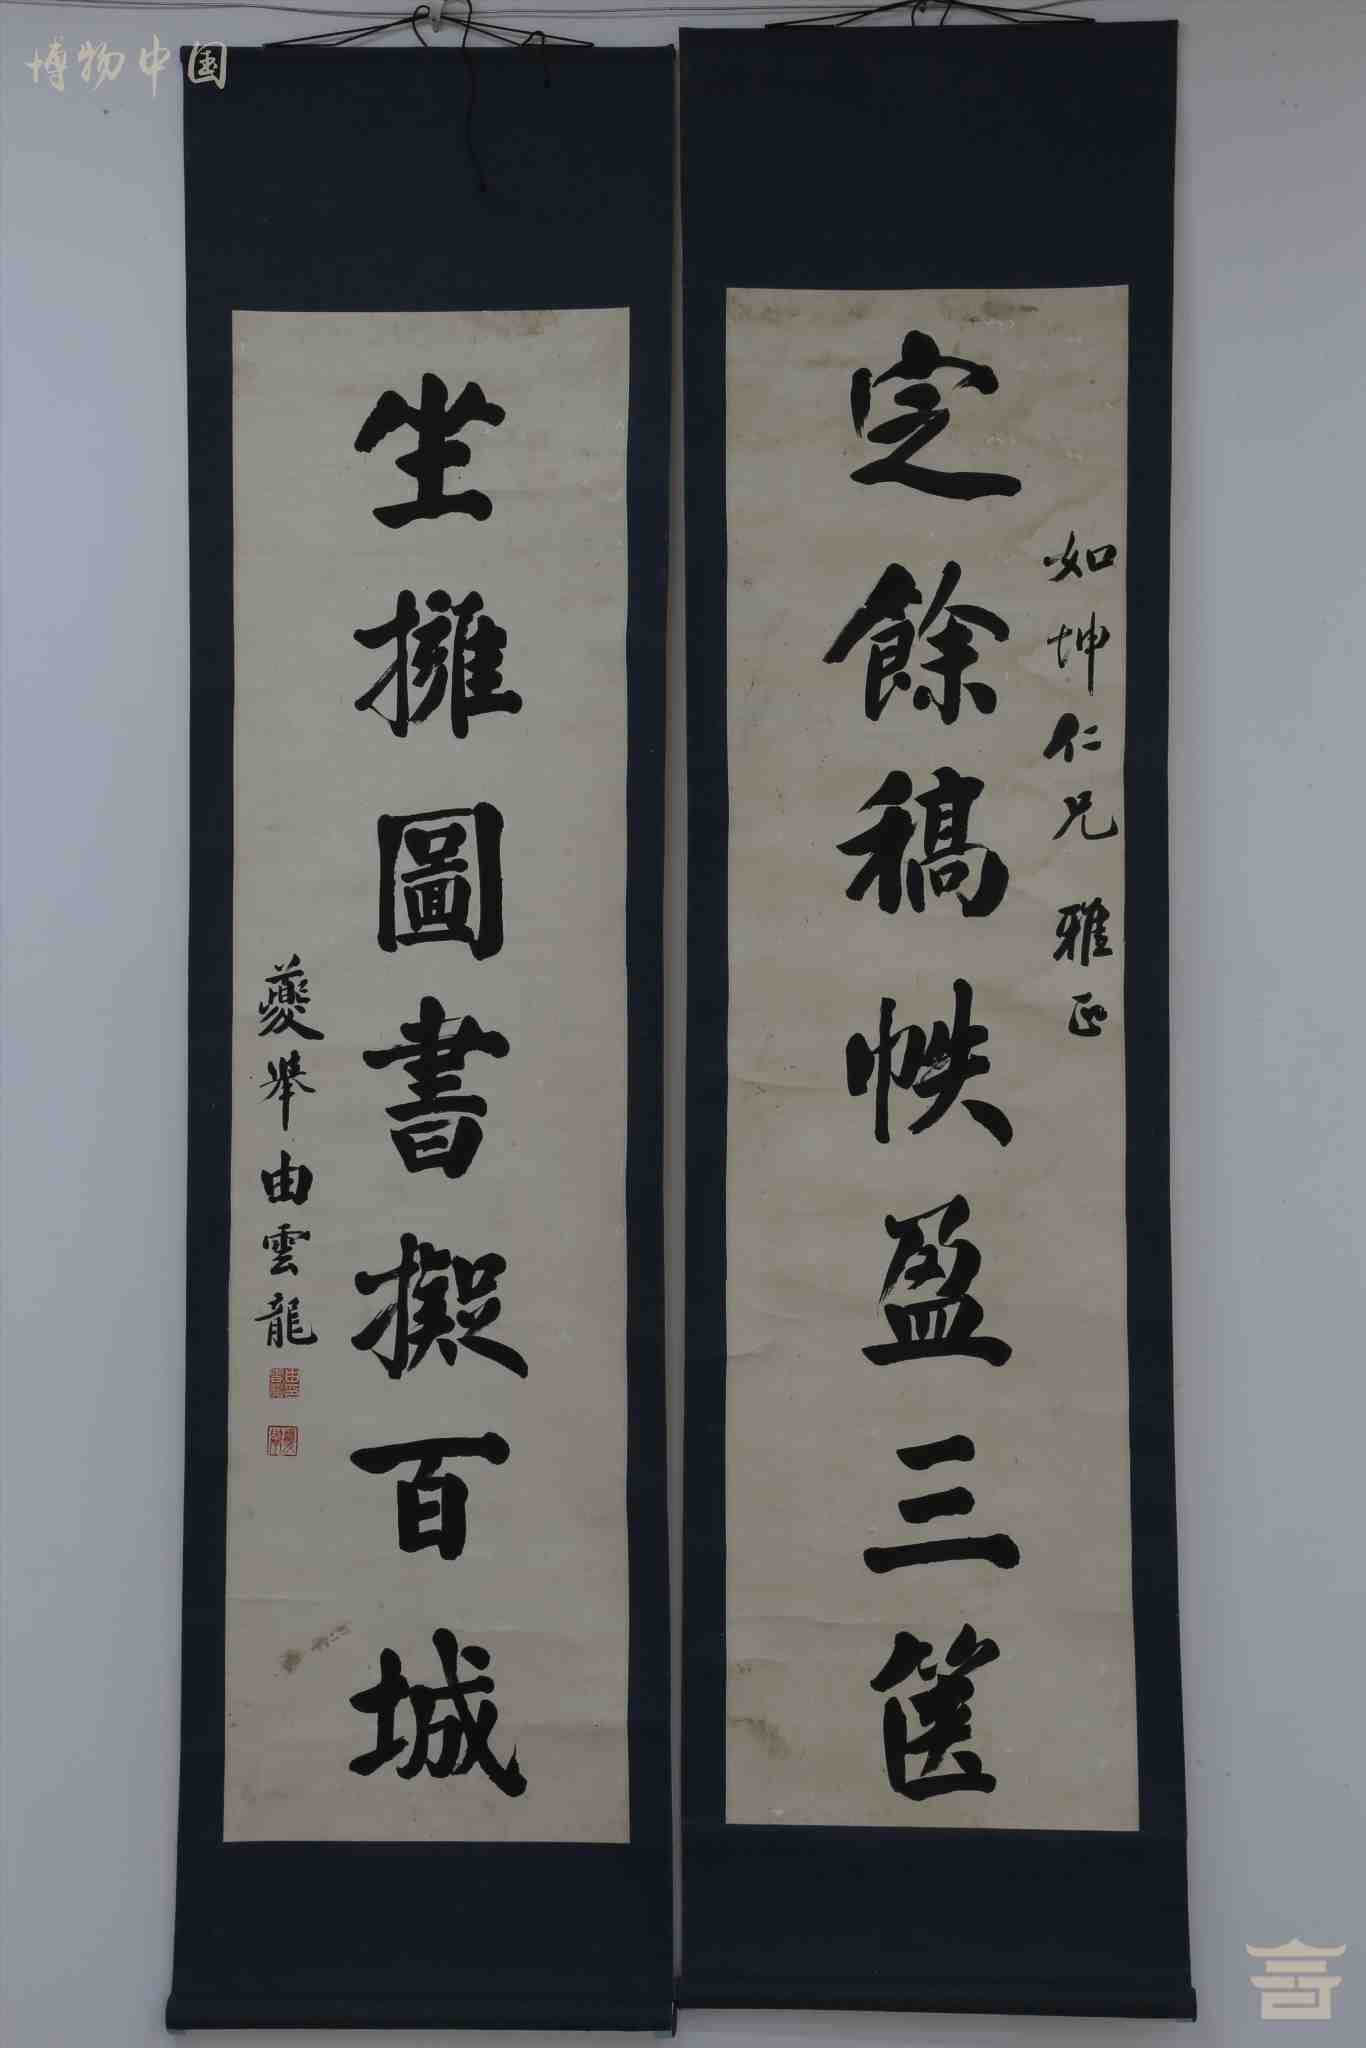 博物中国
如坤仁兄 雅正
定餘稿帙盈三篋
坐擁圖書擬百城
夔舉由雲龍